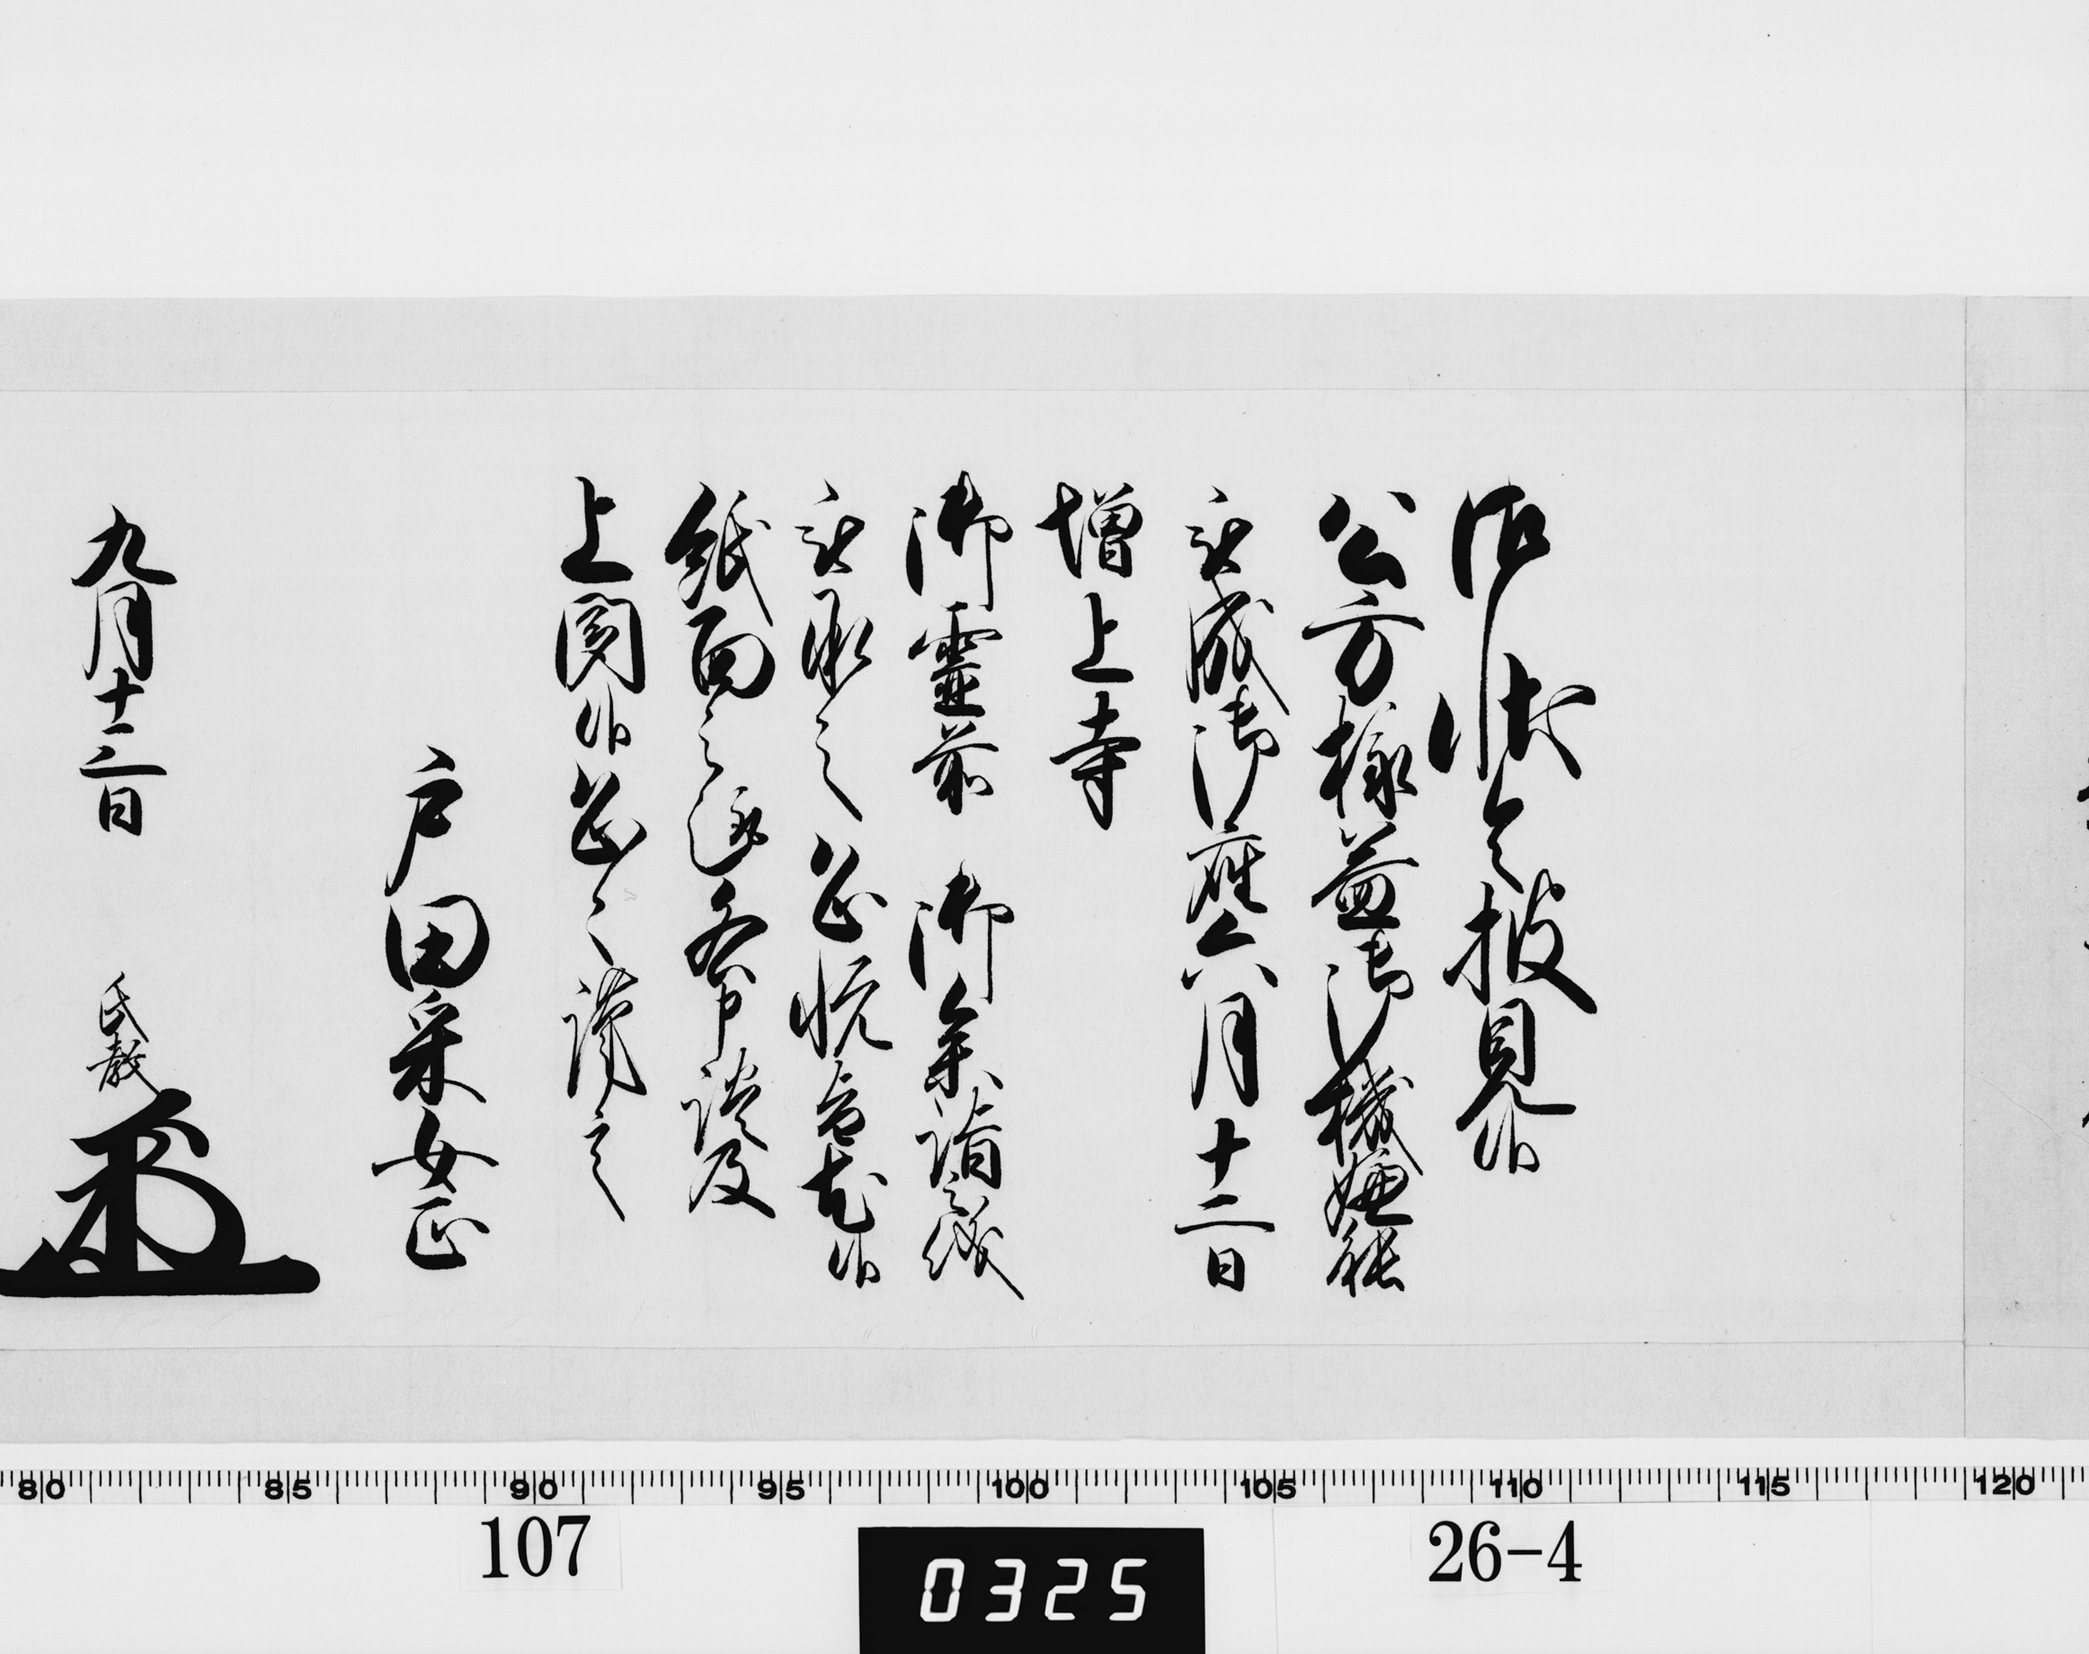 御状令披見候
公方様益御機嫌能
被成御座六月十二日
増上寺
御霊前 御参詣之儀
被承之恐悦旨尤候
紙面之趣各申談及
上聞候恐々謹言
戸田采女正
九月十二日 氏教
80 85 90 95 100 105 110 115 120
107
0325
26-4